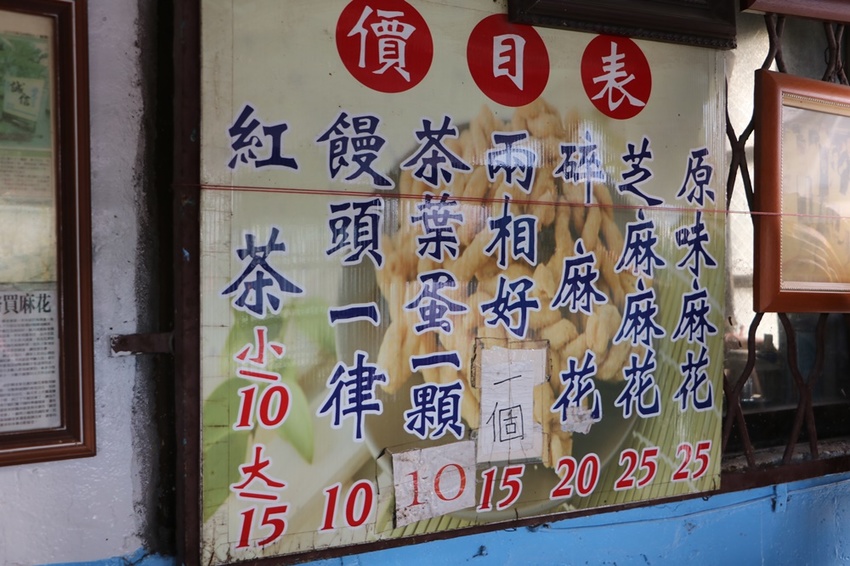 價目表
原味麻花 25
芝麻麻花 25
碎麻花 20
兩相好一個 15
茶葉蛋一顆 10
饅頭一律 10
紅茶 小10 大15
買麻花
誠信